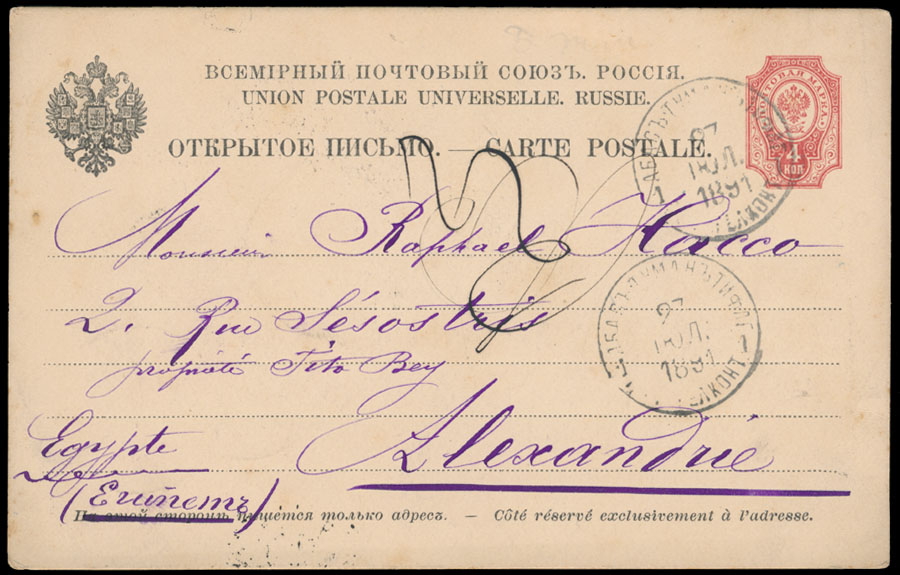 ВСЕМІРНЫЙ ПОЧТОВЫЙ СОЮЗЪ. РОССІЯ.
UNION POSTALE UNIVERSELLE. RUSSIE.
ОТКРЫТОЕ ПИСЬМО. — CARTE POSTALE.
ПОЧТОВАЯ МАРКА
4
КОП
27
ІЮЛ.
1891
1
Monsieur Raphael Hacco
2. Rue Sésostris
27
ІЮЛ.
1891
1
propriété Tito Bey
Egypte
Alexandrie
(Египетъ)
На этой сторонѣ пишется только адресъ. — Côté réservé exclusivement à l'adresse.